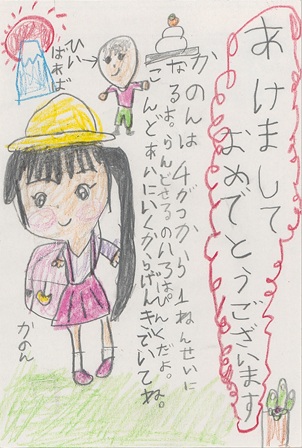 あけまして
おめでとうございます
かのんは 4がつから 1ねんせいに
なるよ。らんどせるのいろはぴんくだよ。
こんどあいにいくからげんきでいてね。
ひい
ばあば
かのん